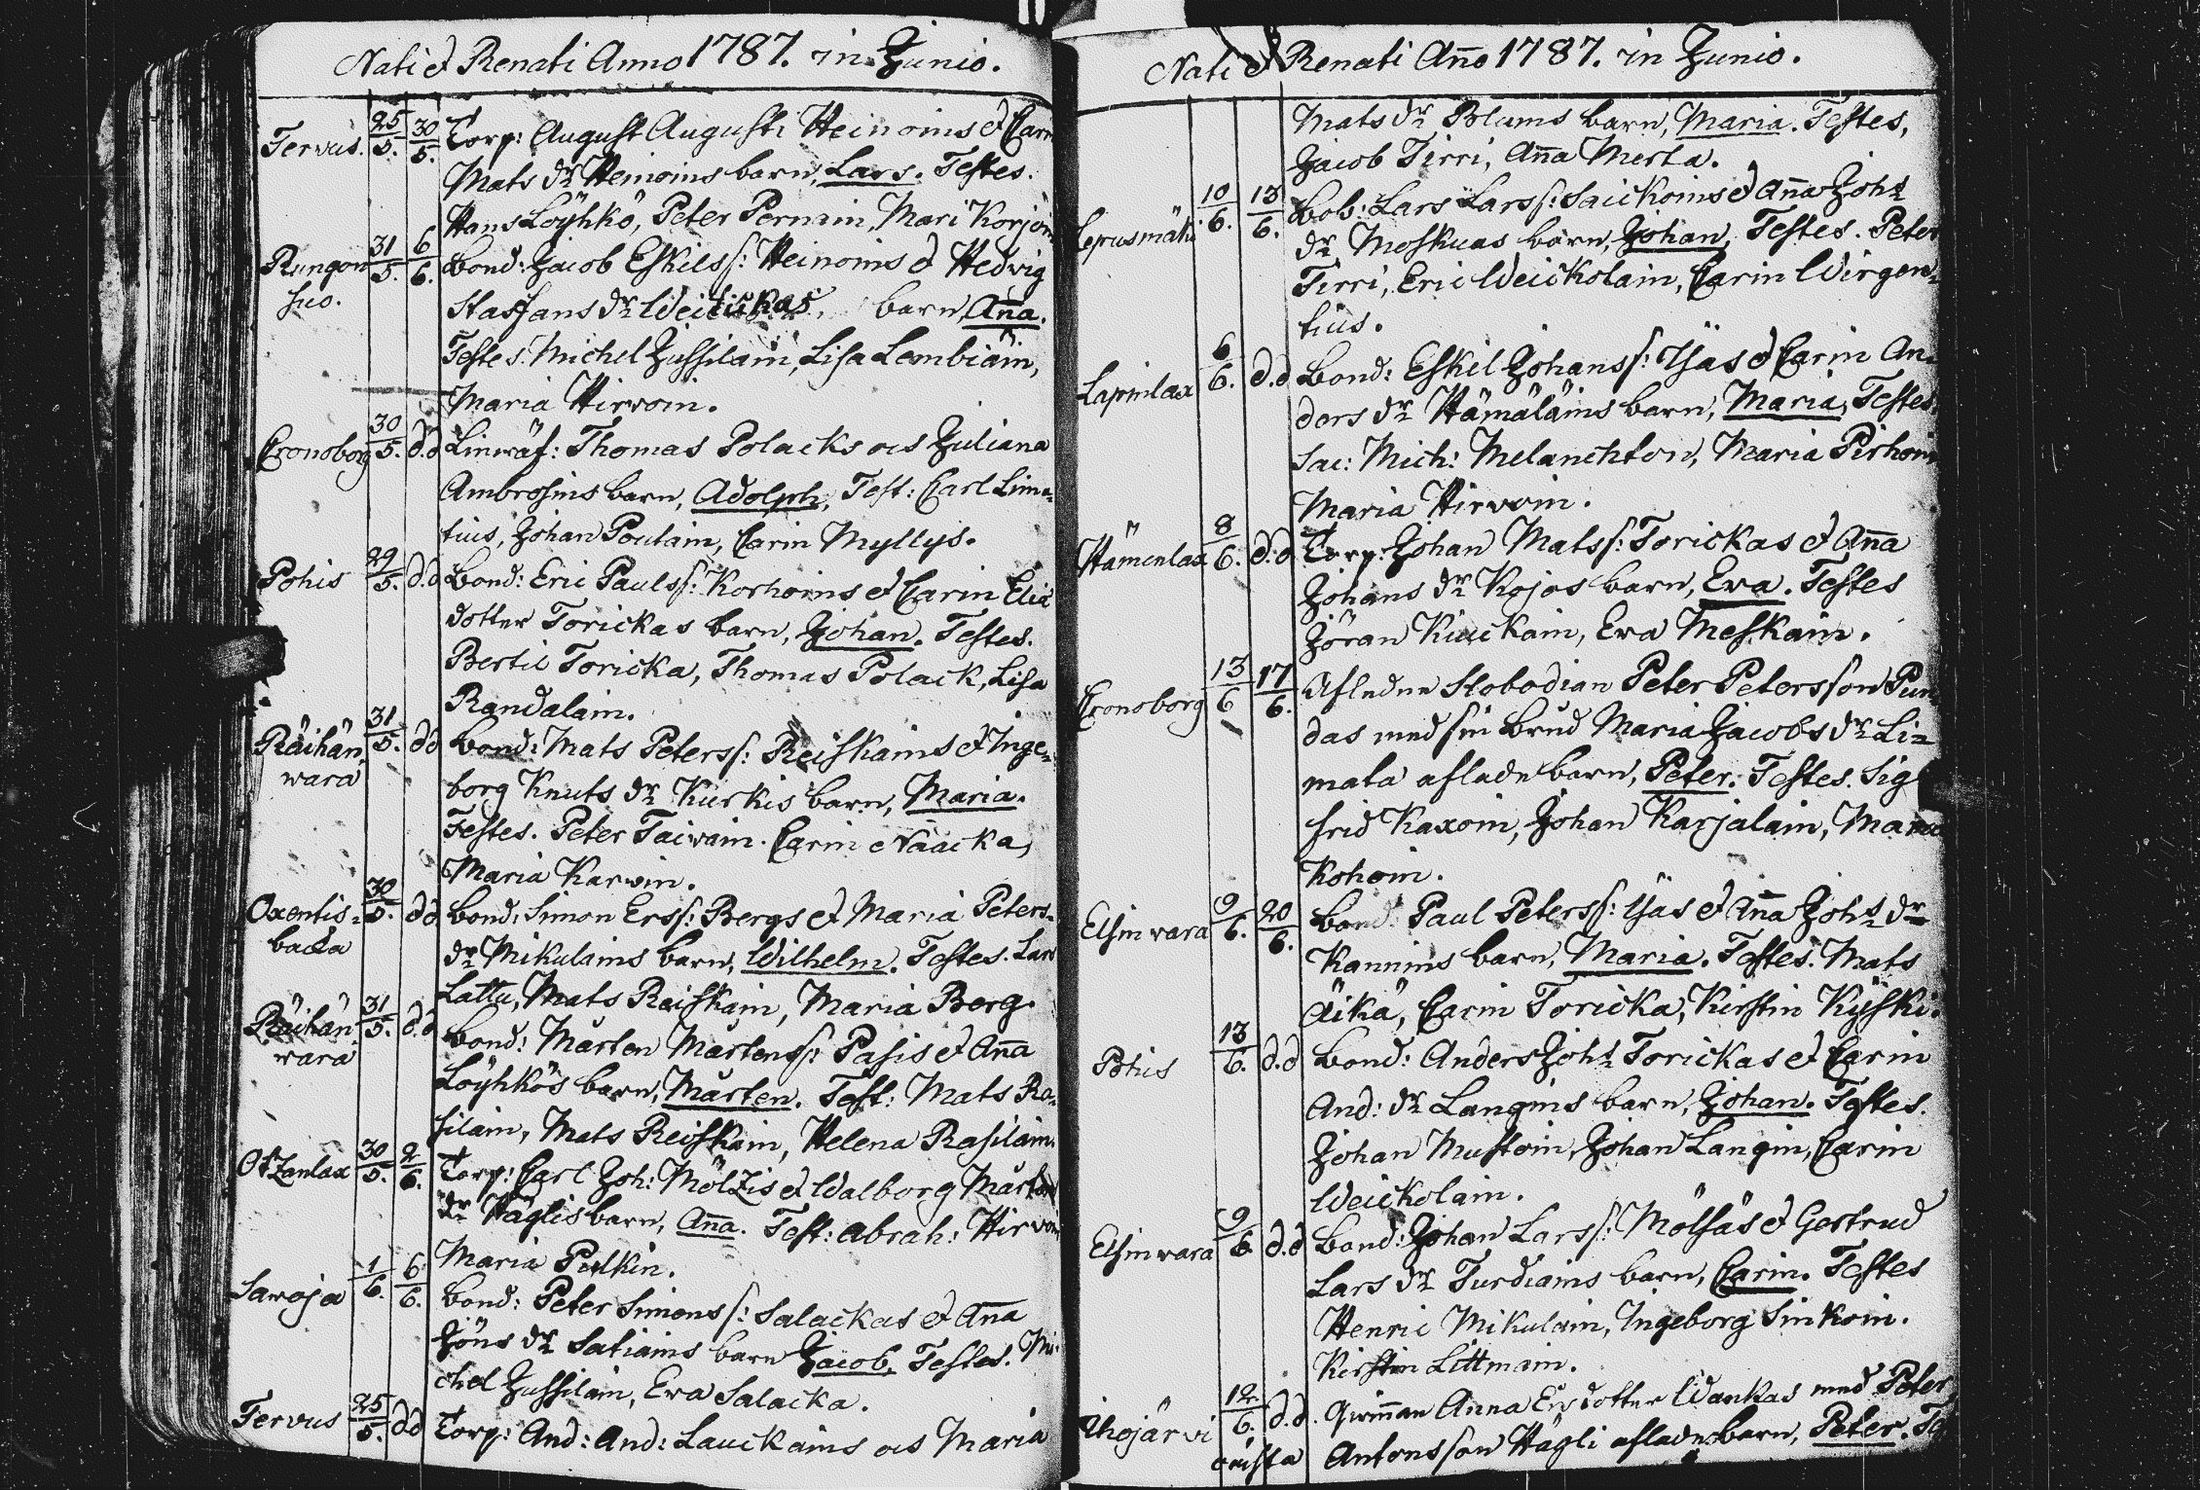 Nati et Renati Anno 1787. in Junio.
Tervus. 25/5. 30/5. Torp: August Augusti Heinoins et Carin
Mats dr Heinoins barn, Lars. Testes.
Hans Löyhkö, Peter Pernain, Mari Korjoin
Rungon 31/5. 6/6. Bond: Jacob Eskilss: Heinoins et Hedvig
suo. Staffans dr barn, Aña.
Testes. Michel Jussilain, Lisa Lembiäin,
Maria Hirvoin.
Cronoborg 30/5. d.d Linwäf: Thomas Polacks ocs Juliana
Ambrosins barn, Adolph, Test: Carl Lima-
tius, Johan Poutain, Carin Myllys.
Pohis 29/5. d.d Bond: Eric Paulss: Korhoins et Carin Elia
dotter Torickas barn, Johan. Testes.
Bertil Toricka, Thomas Polack, Lisa
Randalain.
Räihän 31/5. dd Bond: Mats Peterss: Reiskains et Inge-
wara borg Knuts dr Kurkis barn, Maria.
Testes. Peter Taivain. Carin Naacka,
Maria Karvin.
Oxentis- 30/5. dd Bond: Simon Erss: Bergs et Maria Peters-
backa dr Mikulains barn, Wilhelm. Testes. Lars
Lattu, Mats Reiskain, Maria Berg.
Räihän 31/5. d.d Bond: Mårten Mårtenss: Pasis et Aña
wara Löyhkös barn, Mårten. Test: Mats Ra-
silain, Mats Reiskain, Helena Rasilain.
Otzanlax 30/5. 2/6. Torp: Carl Joh: Mölzis et Walborg Mårtens
dr Häglis barn, Aña. Test: Abrah: Hirvoin
Maria Pulkin.
Saroja 1/6. 6/6. Bond: Peter Simonss: Salackas et Aña
Jöns dr Satiains barn Jacob, Testes. Mi-
chel Jussilain, Eva Salacka.
Tervus 25/5. dd Torp: And: And: Lauckains ocs Maria
Nati et Renati Año 1787. in Junio.
Mats dr Polums barn, Maria. Testes,
Jacob Tirri, Aña Merta.
Lepusmäki 10/6. 13/6. Bob: Lars Larss: Saickoins et Aña Johs
dr Moskuas barn, Johan, Testes. Peter
Tirri, Eric Weickolain, Carin Wirgen-
tius.
Lapinlax 6/6. d.d Bond: Eskil Johanss: Yjäs et Carin An-
ders dr Hämäläins barn, Maria, Testes.
Sac: Mich: Melanchton, Maria Pirhoin
Maria Hirvoin.
Hämenlax 8/6. d.d Torp: Johan Matss: Torickas et Aña
Johans dr Kojos barn, Eva. Testes
Jöran Kiuckain, Eva Meskain.
Cronoborg 13/6 17/6. Afledne Slobodian Peter Petersson Pun
das med sin Brud Maria Jacobs dr Li-
mata aflade barn, Peter. Testes. Sig
frid Kaxoin, Johan Karjalain, Maria
Kohoin.
Elsinvara 9/6. 20/6. Bond: Paul Peterss: Yjäs et Aña Johs dr
Kannins barn, Maria. Testes. Mats
Äikä, Carin Toricka, Kirstin Kyski.
Pohis 13/6. d.d Bond: Anders Johs Torickas et Carin
And: dr Langins barn, Johan. Testes.
Johan Mustoin, Johan Langin, Carin
Weickolain.
Elsinvara 9/6. d.d Bond: Johan Larss: Mölsäs et Gertrud
Lars dr Turdiains barn, Carin. Testes
Henric Mikulain, Ingeborg Sinkoin.
Kirstin Littmain.
Ihojärvi 12/6. d.d. Qwiñan Anna Ersdotter Wankas med Peter
oäkta Antonsson Hägli aflade barn, Peter.